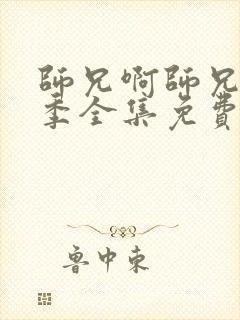 師兄啊師兄
季全集免費
魯中東